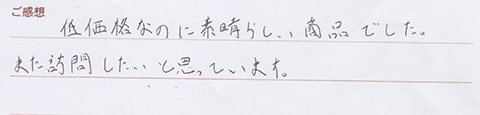 ご感想
低価格なのに素晴らしい商品でした。
また訪問したいと思っています。